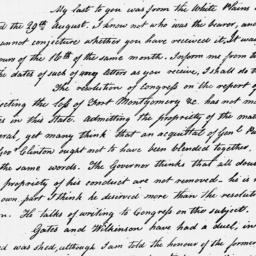 My last to you was from the White Plains
d the 29th August. I know not who was the bearer, and
cannot conjecture whether you have received it, It was
ours of the 16th of the same month. Inform me from t
the dates of such of my letters as you receive, I shall do t
The resolution of Congress on the report of
ecting the loss of Fort Montgomery &c. has not m
es in this State. admitting the propriety of the mat
eral, yet many think that an acquittal of Genl. Pu
Gov Clinton ought not to have been blended together,
the same words. The Governor thinks that all dou
propriety of his conduct are not removed - he is n
own part I think he deserved more than the resolut
n. He talks of writing to Congress on the subject.
Gates and Wilkinson have had a duel, in
d was shed, although I am told the honour of the former